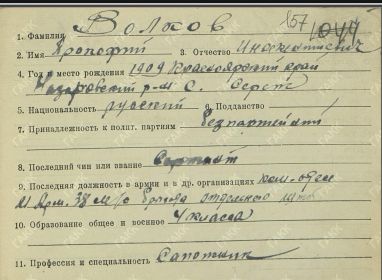 157 1044
1. Фамилия Волков
2. Имя Прокофий 3. Отчество Инокентиевич
4. Год и место рождения 1909 Красноярский край
Назаровский р-н с. Сереж
5. Национальность русский 6. Подданство
7. Принадлежность к полит. партиям безпартейный
8. Последний чин или звание Сержант
9. Последняя должность в армии и в др. организациях ком-отдел
38 бригада отдельного
10. Образование общее и военное 4 класса
11. Профессия и специальность Сапожник